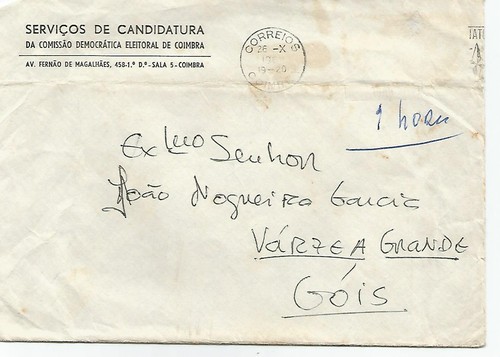 SERVIÇOS DE CANDIDATURA
DA COMISSÃO DEMOCRÁTICA ELEITORAL DE COIMBRA
AV. FERNÃO DE MAGALHÃES, 458-1.º D.º - SALA 5 - COIMBRA
CORREIOS
26 -X
19-20
1 hora
Exmo Senhor
João Nogueira Garcia
VÁRZEA GRANDE
GÓIS